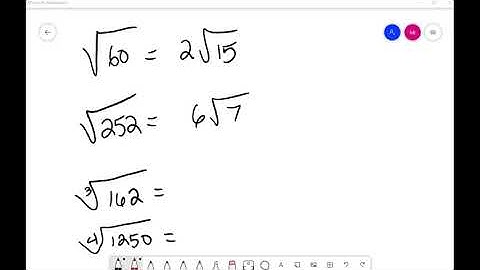 √60 = 2√15
√252 = 6√7
∛162 =
∜1250 =